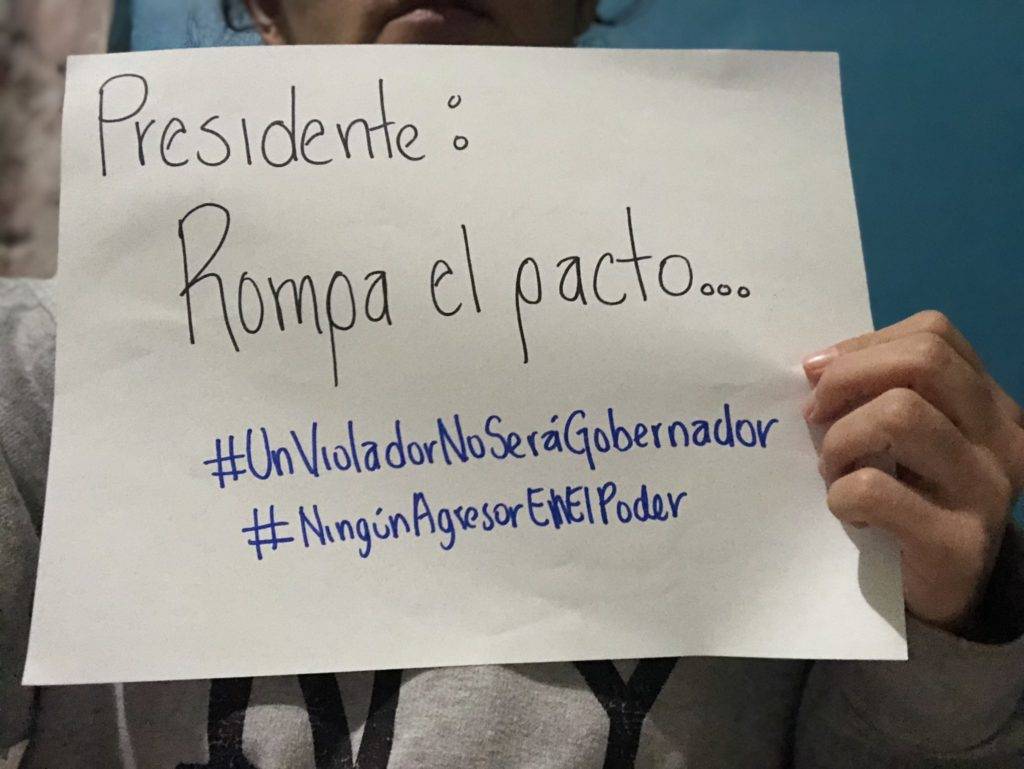 Presidente:
Rompa el pacto...
#UnVioladorNoSeráGobernador
#NingúnAgresorEnElPoder